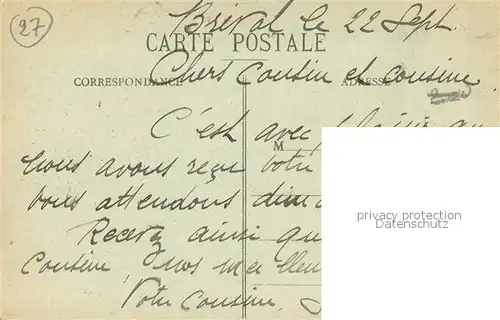 27
Bréval le 22 Sept.
CARTE POSTALE
Chers Cousin et cousine
CORRESPONDANCE
ADRESSE
C'est avec plaisir que
M
nous avons reçu votre
vous attendons dima
Recevez ainsi que
Cousine, nos meilleu
Votre Cousine.
privacy protection
Datenschutz